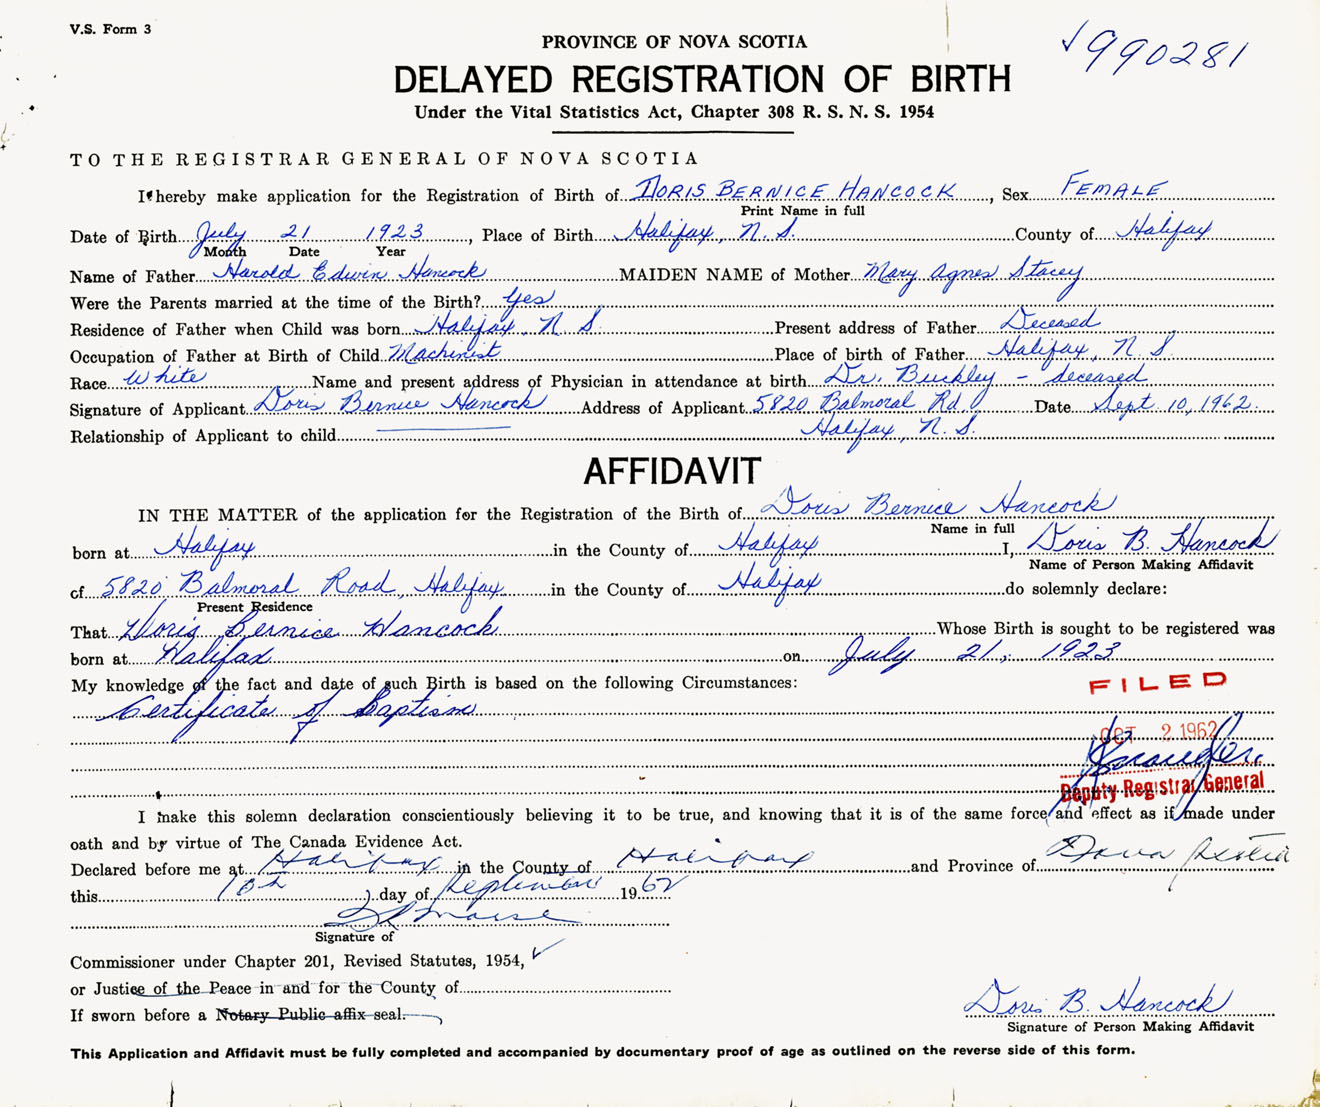 V.S. Form 3
PROVINCE OF NOVA SCOTIA
√990281
DELAYED REGISTRATION OF BIRTH
Under the Vital Statistics Act, Chapter 308 R. S. N. S. 1954
TO THE REGISTRAR GENERAL OF NOVA SCOTIA
I hereby make application for the Registration of Birth of DORIS BERNICE HANCOCK, Sex FEMALE
Print Name in full
Date of Birth July 21 1923, Place of Birth Halifax, N. S. County of Halifax
Month Date Year
Name of Father Harold Edwin Hancock MAIDEN NAME of Mother Mary Agnes Stacey
Were the Parents married at the time of the Birth? Yes
Residence of Father when Child was born Halifax, N. S. Present address of Father Deceased
Occupation of Father at Birth of Child Machinist Place of birth of Father Halifax, N. S.
Race White Name and present address of Physician in attendance at birth Dr. Buckley - deceased
Signature of Applicant Doris Bernice Hancock Address of Applicant 5820 Balmoral Rd Date Sept. 10, 1962.
Relationship of Applicant to child Halifax, N. S.
AFFIDAVIT
IN THE MATTER of the application for the Registration of the Birth of Doris Bernice Hancock
Name in full
born at Halifax in the County of Halifax I, Doris B. Hancock
Name of Person Making Affidavit
of 5820 Balmoral Road, Halifax in the County of Halifax do solemnly declare:
Present Residence
That Doris Bernice Hancock Whose Birth is sought to be registered was
born at Halifax on July 21, 1923
My knowledge of the fact and date of such Birth is based on the following Circumstances:
FILED
Certificate of Baptism
OCT 2 1962
Deputy Registrar General
I make this solemn declaration conscientiously believing it to be true, and knowing that it is of the same force and effect as if made under
oath and by virtue of The Canada Evidence Act.
Declared before me at Halifax in the County of Halifax and Province of Nova Scotia
this 10th day of September 1962
Signature of
Commissioner under Chapter 201, Revised Statutes, 1954, ✓
or Justice of the Peace in and for the County of
If sworn before a Notary Public affix seal.
Doris B. Hancock
Signature of Person Making Affidavit
This Application and Affidavit must be fully completed and accompanied by documentary proof of age as outlined on the reverse side of this form.